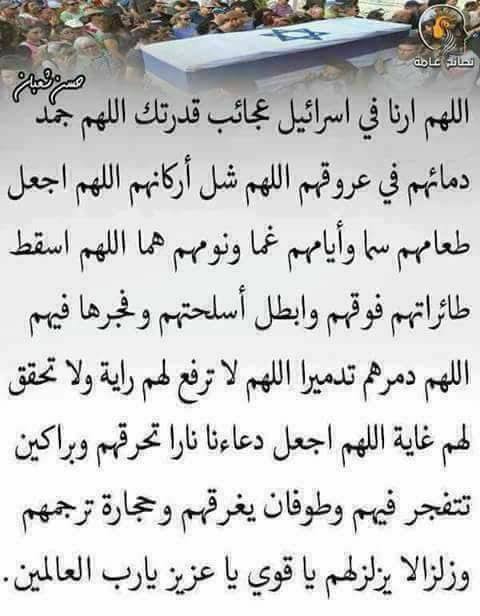 نصائح عامة
حسن شعبان
اللهم ارنا في اسرائيل عجائب قدرتك اللهم جمد
دمائهم في عروقهم اللهم شل أركانهم اللهم اجعل
طعامهم سما وأيامهم غما ونومهم هما اللهم اسقط
طائراتهم فوقهم وابطل أسلحتهم وفجرها فيهم
اللهم دمرهم تدميرا اللهم لا ترفع لهم راية ولا تحقق
لهم غاية اللهم اجعل دعاءنا نارا تحرقهم وبراكين
تتفجر فيهم وطوفان يغرقهم وحجارة ترجمهم
وزلزالا يزلزلهم يا قوي يا عزيز يارب العالمين.